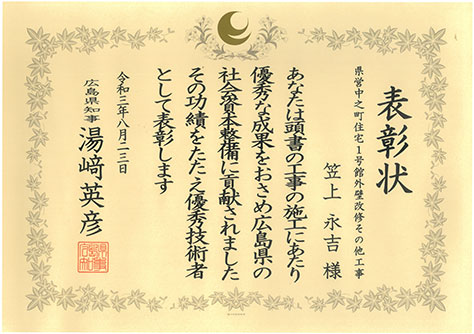 表彰状
県営中之町住宅1号館外壁改修その他工事
笠上永吉様
あなたは頭書の工事の施工にあたり
優秀な成果をおさめ広島県の
社会資本整備に貢献されました
その功績をたたえ優秀技術者
として表彰します
令和三年八月二三日
広島県知事 湯﨑英彦